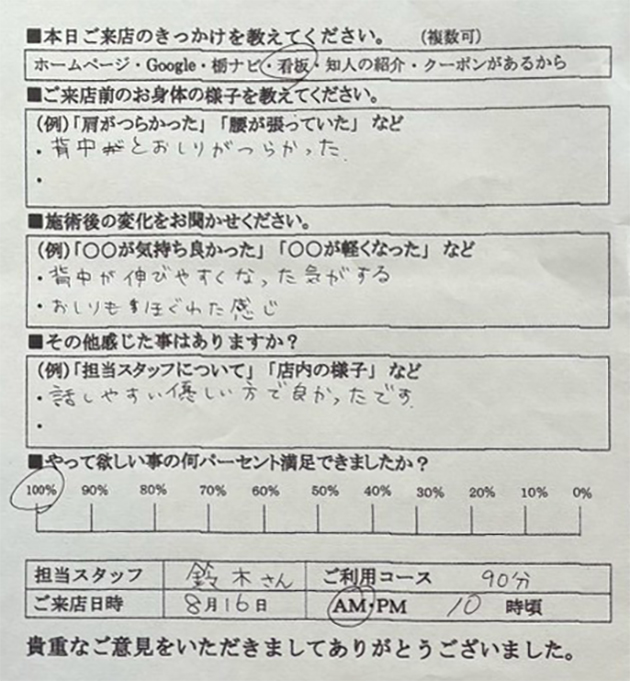 ■本日ご来店のきっかけを教えてください。 (複数可)
ホームページ・Google・栃ナビ・看板・知人の紹介・クーポンがあるから
■ご来店前のお身体の様子を教えてください。
(例)「肩がつらかった」「腰が張っていた」など
・背中とおしりがつらかった.
・
■施術後の変化をお聞かせください。
(例)「〇〇が気持ち良かった」「〇〇が軽くなった」など
・背中が伸びやすくなった気がする
・おしりもほぐれた感じ
■その他感じた事はありますか?
(例)「担当スタッフについて」「店内の様子」など
・話しやすい優しい方で良かったです.
・
■やって欲しい事の何パーセント満足できましたか?
100% 90% 80% 70% 60% 50% 40% 30% 20% 10% 0%
担当スタッフ 鈴木さん ご利用コース 90分
ご来店日時 8月16日 AM・PM 10時頃
貴重なご意見をいただきましてありがとうございました。